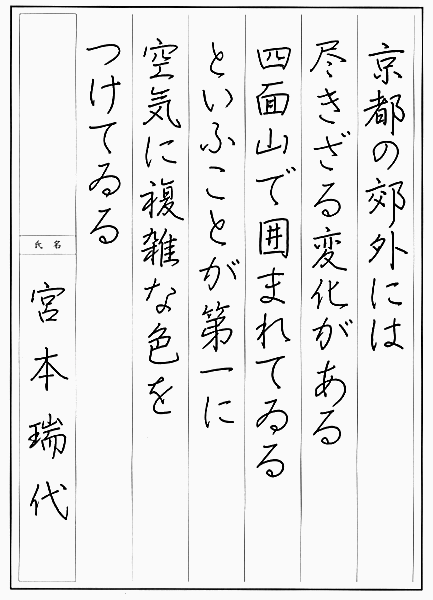 京都の郊外には
尽きざる変化がある
四面山で囲まれてゐる
といふことが第一に
空気に複雑な色を
つけてゐる
氏名
宮本瑞代